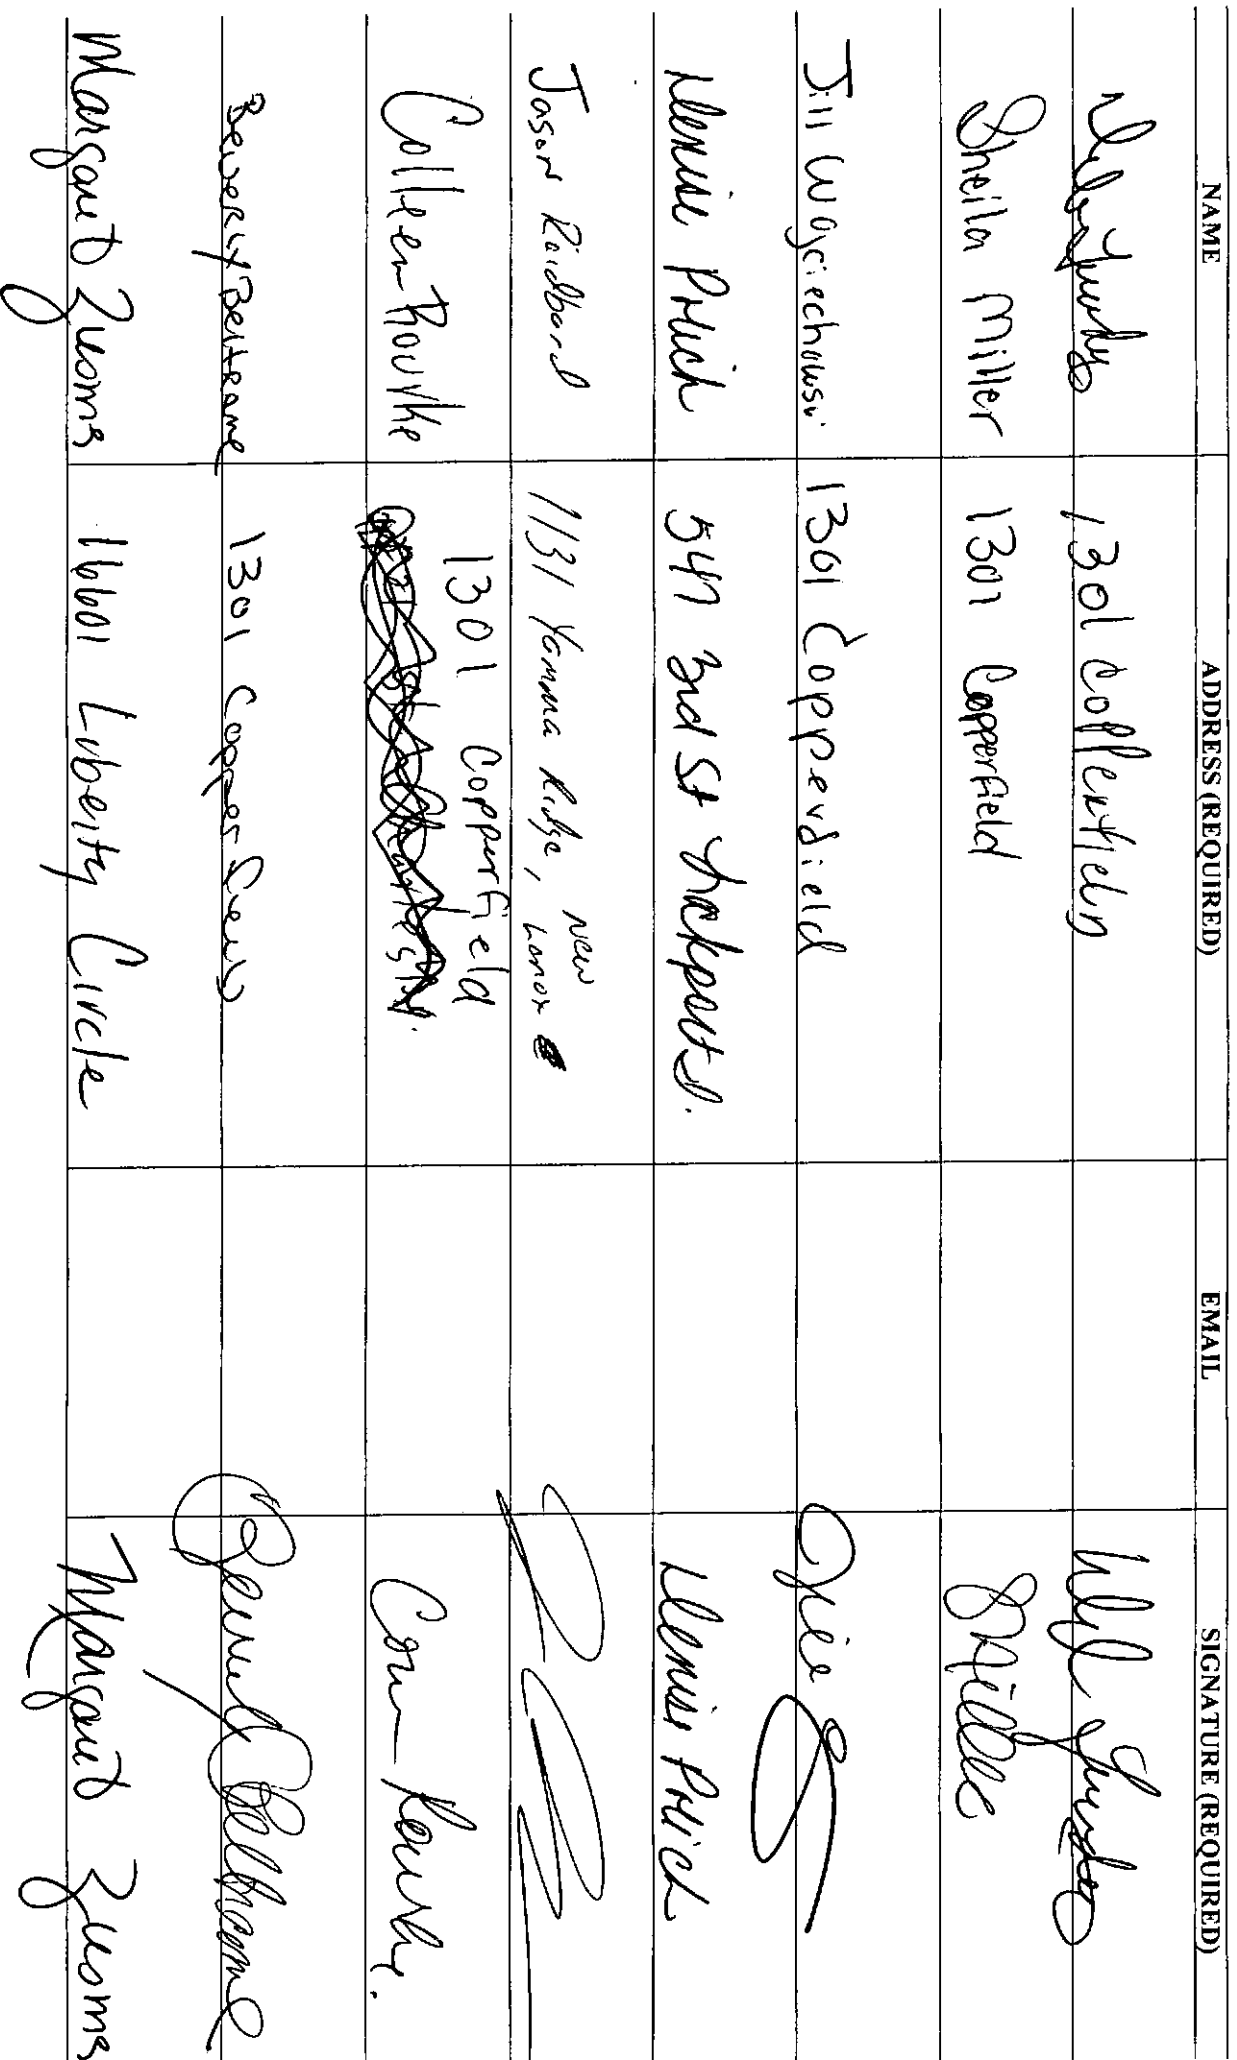 NAME ADDRESS (REQUIRED) EMAIL SIGNATURE (REQUIRED)
1301 Copperfield
Sheila Miller 1301 Copperfield SMiller
Jill Wojciechowski 1301 Copperfield
Denise Prlich 547 3rd St Lockport Il. Denise Prlich
Jason Raidbard 1131 Yamma Ridge, New Lenox
Colleen Rourke 1301 Copperfield Rourke
Beverly Beltrame 1301 Copperfield Beverly Beltrame
Margaret Zuoms 16601 Luberity Circle Margaret Zuoms